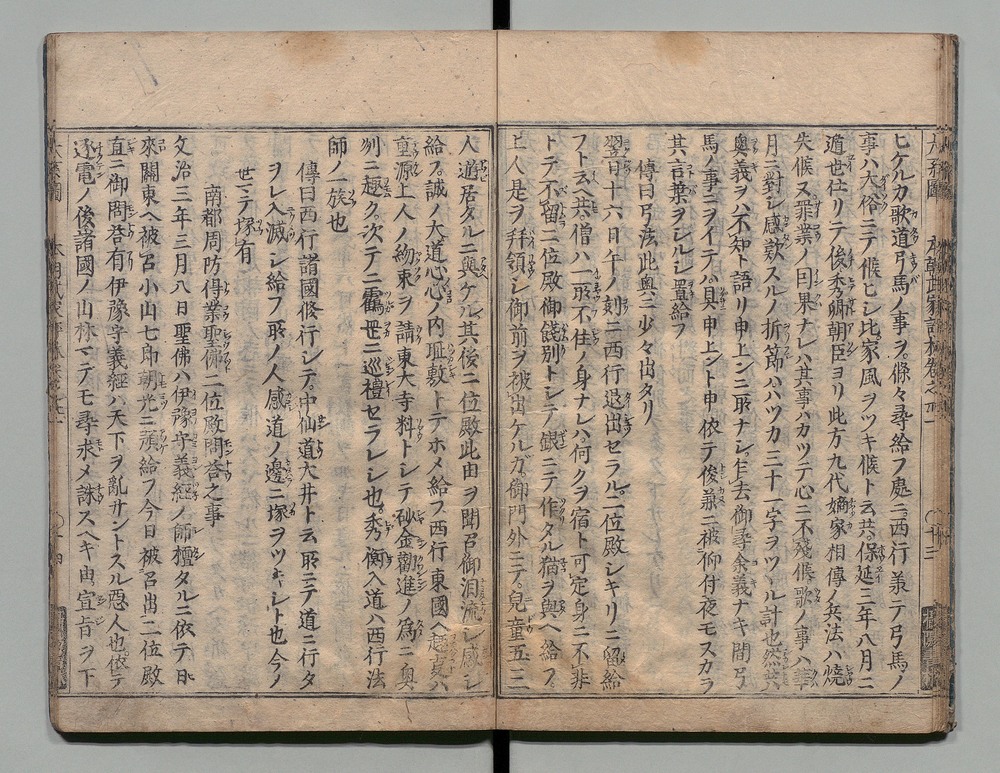 ヒケルカ歌道弓馬ノ事ヲ。條々尋給フ處ニ西行兼テ弓馬ノ
事ハ大俗ニテ候ヒシ比家風ヲツキ候ト云共。保延三年八月ニ
遁也仕リテ後秀郷朝臣ヨリ此方九代嫡家相傳ノ兵法ハ燒
失候又罪業ノ因果ナレハ其事ハカツテ心ニ不殘候歌ノ事ハ華
月ニ對シ感歎スルノ折節ハハツカ三十一字ヲツヽル計也然共
奥義ヲハ不知ト語リ申上ンニ所ナシ。乍去御尋余義ナキ間弓
馬ノ事ニヲイテハ具申上ント申依テ後兼ニ被仰付夜モスカラ
其言葉ヲシルシ置給フ
傳曰弓法此奥ニ少々出タリ
翌日十六日午ノ刻ニ西行退出セラル。二位殿シキリニ留給
フト云ヘ共僧ハ一所不住ノ身ナレハ何クヲ宿ト可定身ニ不非
トテ不留二位殿御餞別トシテ銀ニテ作タル猫ヲ與ヘ給フ。
上人是ヲ拜領シ御前ヲ被出ケルガ御門外ニテ。兒童五三
人遊居タルニ與ケル其後二位殿此由ヲ聞召御泪流シ感シ
給フ。誠ノ大道心心ノ内耻敷トテホメ給フ西行東國ヘ趣支ハ
重源上人ノ約束ヲ請東大寺料トシテ砂金勸進ノ為ニ奥
刕ニ趣ク。次テニ霍𦊆ニ巡禮セラレシ也。秀衡入道ハ西行法
師ノ一族也
傳曰西行諸國修行シテ。中仙道大井ト云所ニテ道ニ行タ
ヲレ入滅シ給フ所ノ人感道ノ邊ニ塚ヲツキシト也今ノ
世マテ塚有
南都周防得業聖佛二位殿問答之事
文治三年三月八日聖佛ハ伊豫守義經ノ師檀タルニ依テ日
來關東ヘ被召小山七郎朝光ニ預給フ今日被召出二位殿
直ニ御問答有伊豫守義經ハ天下ヲ亂サントスル惡人也。依テ
逐電ノ後諸國ノ山林マテモ尋求メ誅スヘキ由。宣旨ヲ下